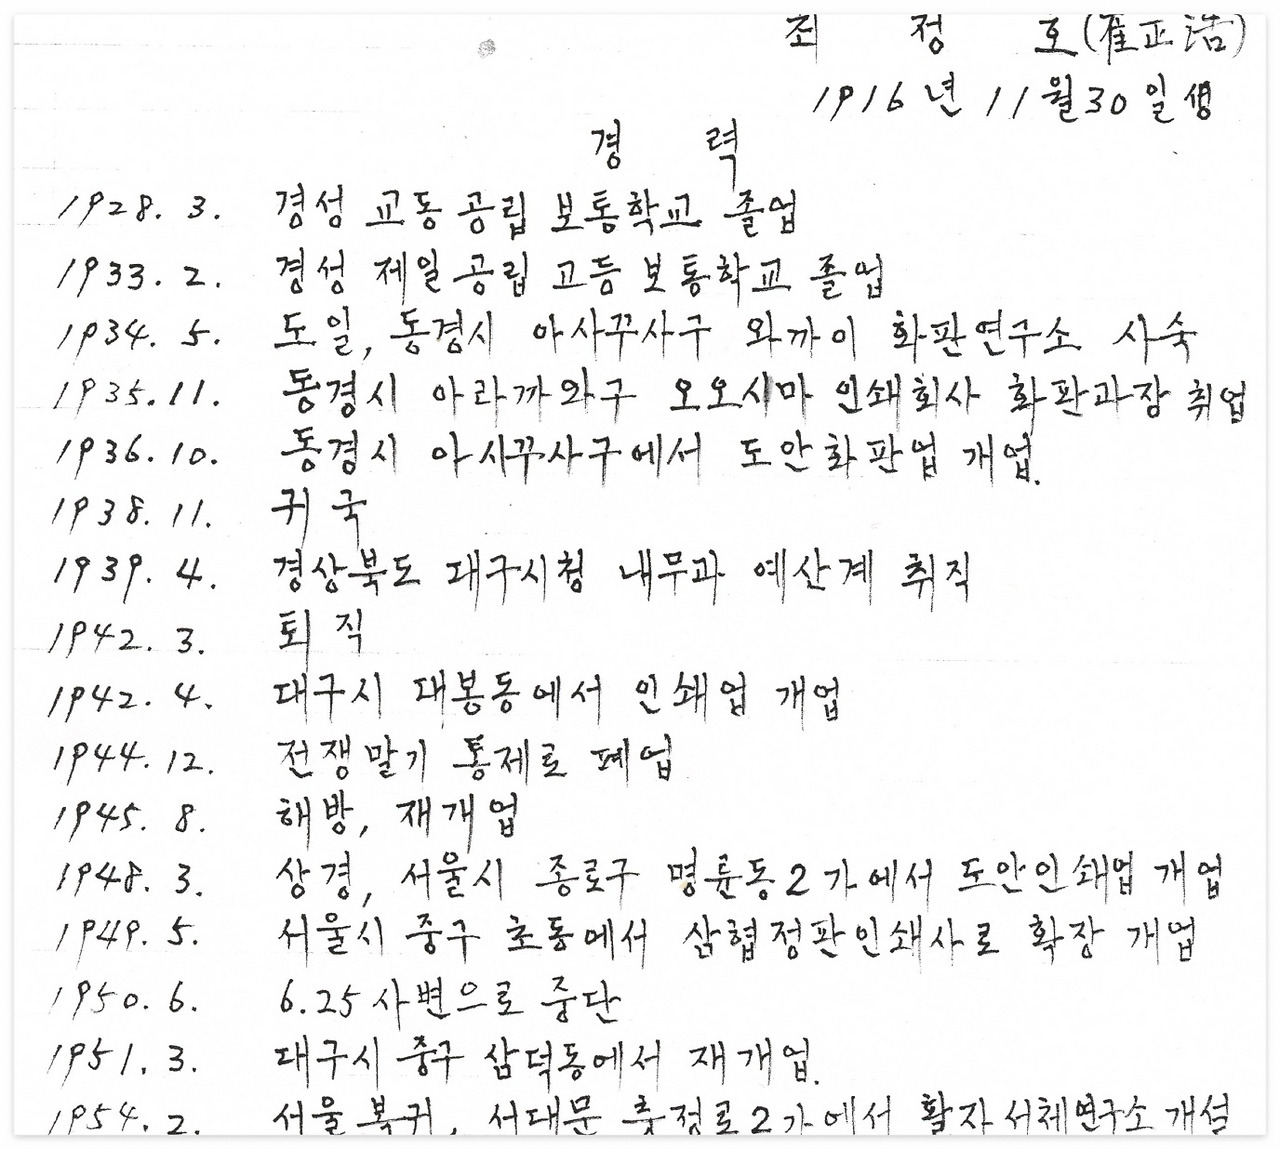 최 정 호(崔正浩)
1916년 11월 30일생
경 력
1928. 3. 경성 교동 공립 보통학교 졸업
1933. 2. 경성 제일 공립 고등 보통학교 졸업
1934. 5. 도일, 동경시 아사꾸사구 와까이 화판연구소 사숙
1935. 11. 동경시 아라까와구 오오시마 인쇄회사 화판과장 취업
1936. 10. 동경시 아사꾸사구에서 도안화판업 개업.
1938. 11. 귀국
1939. 4. 경상북도 대구시청 내무과 예산계 취직
1942. 3. 퇴직
1942. 4. 대구시 대봉동에서 인쇄업 개업
1944. 12. 전쟁말기 통제로 폐업
1945. 8. 해방, 재개업
1948. 3. 상경, 서울시 종로구 명륜동2가에서 도안인쇄업 개업
1949. 5. 서울시 중구 초동에서 삼협정판인쇄사로 확장 개업
1950. 6. 6.25사변으로 중단
1951. 3. 대구시 중구 삼덕동에서 재개업.
1954. 2. 서울 복귀, 서대문 충정로2가에서 활자서체연구소 개설